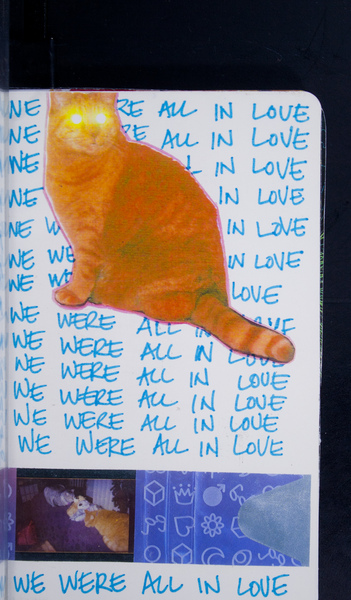 WE RE ALL IN LOVE
WE RE ALL IN LOVE
WE L IN LOVE
WE IN LOVE
WE W IN LOVE
WE WE IN LOVE
WE WE LOVE
WE WERE ALL IN LOVE
WE WERE ALL IN LOVE
WE WERE ALL IN LOVE
WE WERE ALL IN LOVE
WE WERE ALL IN LOVE
WE WERE ALL IN LOVE
WE WERE ALL IN LOVE